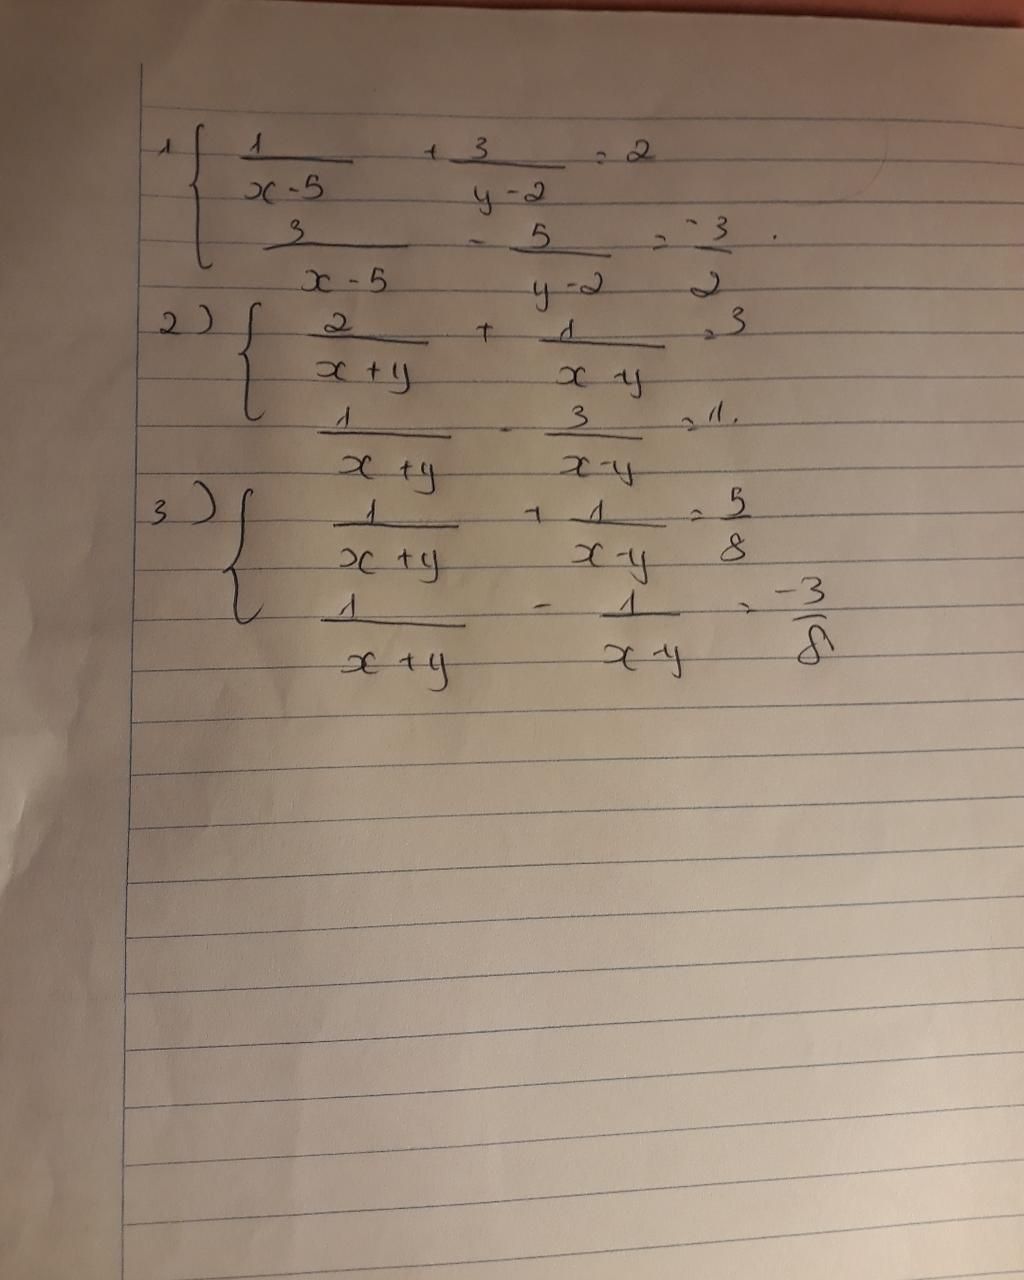 1 { 1/(x-5) + 3/(y-2) = 2
3/(x-5) - 5/(y-2) = -3/2 .
2) { 2/(x+y) + 1/(x-y) = 3
1/(x+y) - 3/(x-y) = 1.
3) { 1/(x+y) + 1/(x-y) = 5/8
1/(x+y) - 1/(x-y) = -3/8